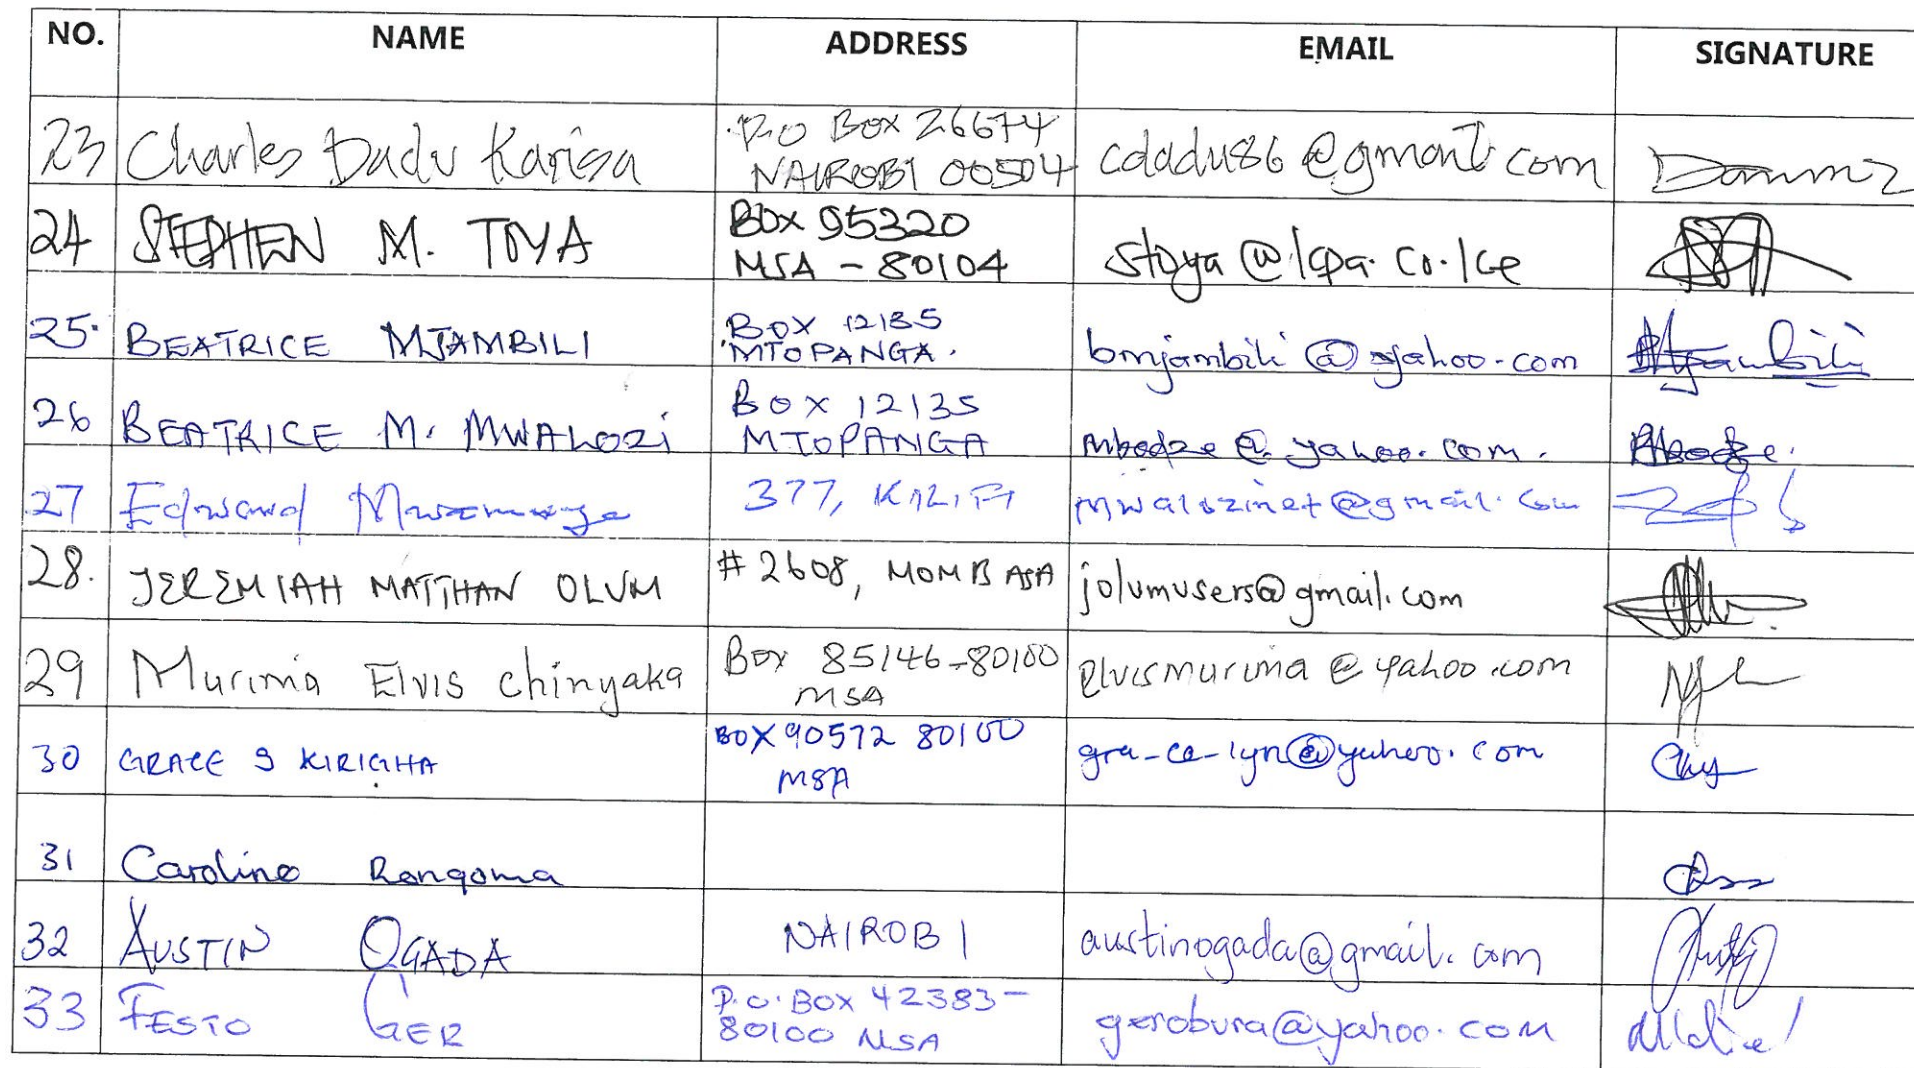 NO. NAME ADDRESS EMAIL SIGNATURE
23 Charles Dadu Karisa P.O Box 26674 NAIROBI 00504 cdadu86@gmail.com
24 STEPHEN M. TOYA BOX 95320 MSA - 80104 stoya@kpa.co.ke
25. BEATRICE MJAMBILI BOX 12135 MTOPANGA. bmjambili@yahoo.com Mjambili
26 BEATRICE M. MWALOZI BOX 12135 MTOPANGA mbodze@yahoo.com. Mbodze.
27 Edward 377, KILIFI mwalozinet@gmail.com
28. JEREMIAH MATTHAN OLUM # 2608, MOMBASA jolumusers@gmail.com
29 Murima Elvis Chinyaka Box 85146-80100 MSA elvismurima@yahoo.com
30 GRACE S KIRIGHA BOX 90572 80100 MSA gra-ce-lyn@yahoo.com
31 Caroline Rongoma
32 AUSTIN OGADA NAIROBI austinogada@gmail.com
33 FESTO GER P.O. BOX 42383- 80100 MSA gerobura@yahoo.com